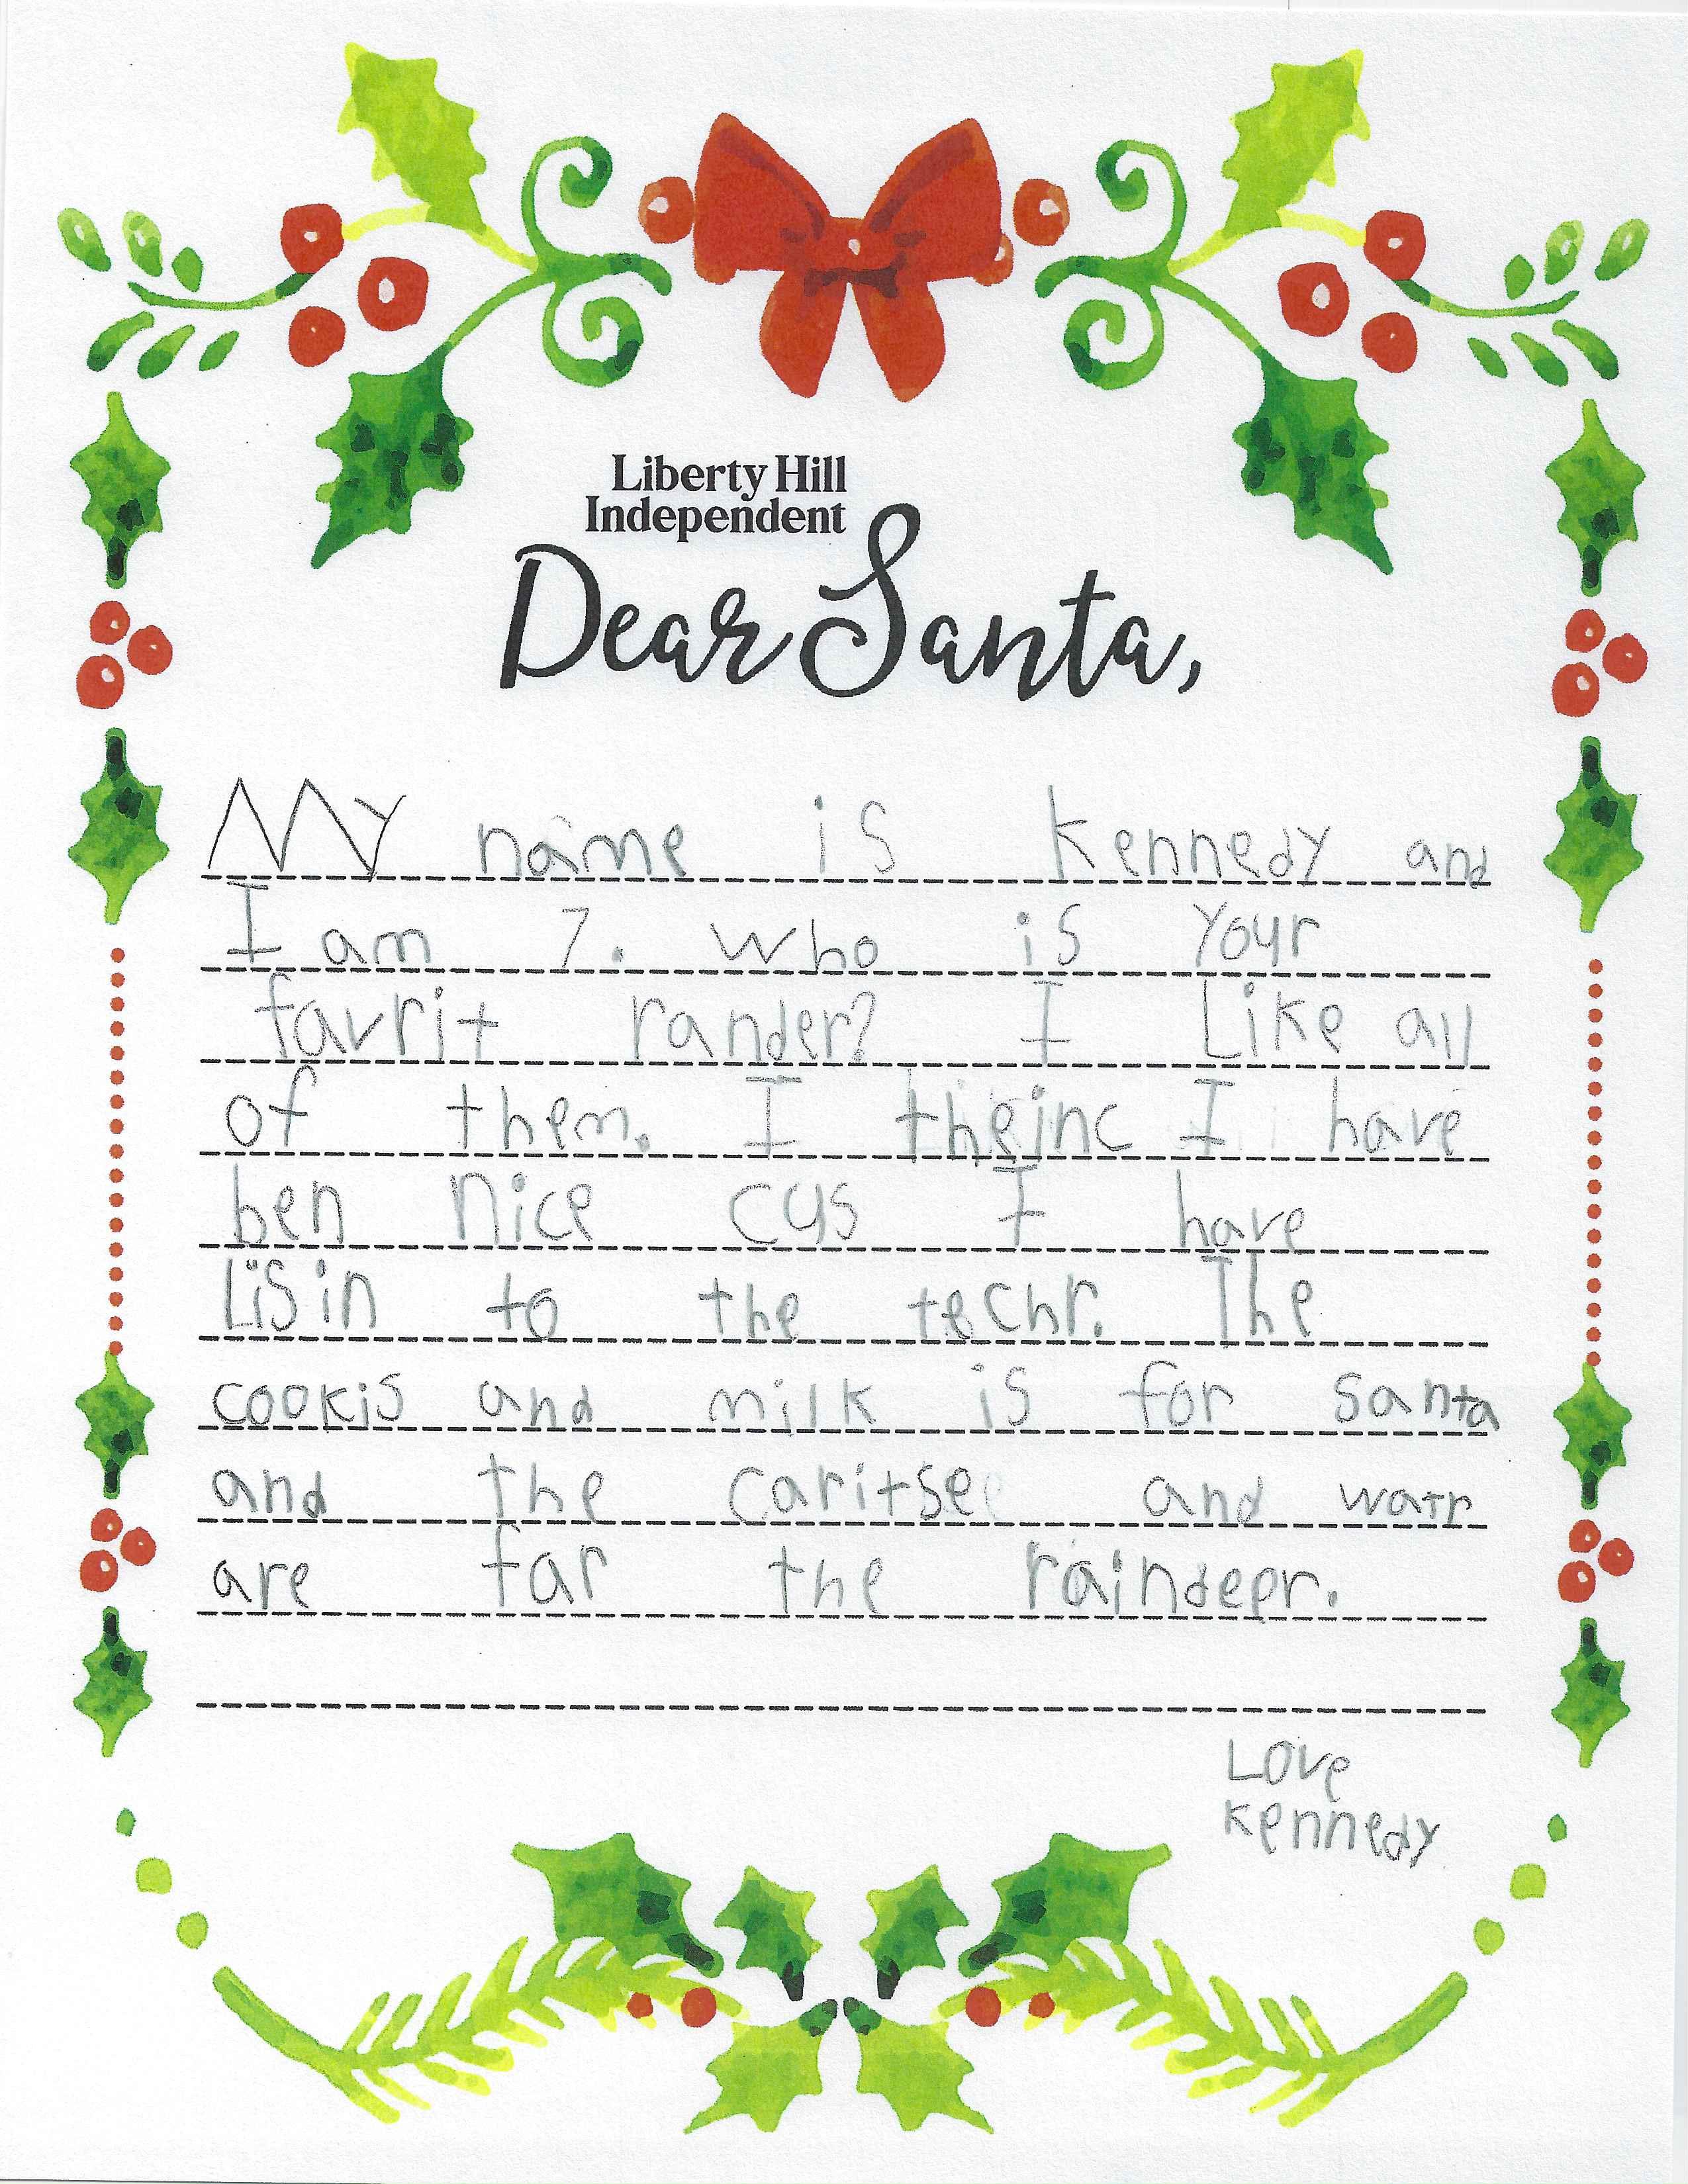 Liberty Hill
Independent
Dear Santa,
My name is Kennedy and
I am 7. who is your
favrit rander? I Like all
of them. I theinc I have
ben nice cus I have
Lisin to the techr. The
cookis and milk is for santa
and the caritse and watr
are far the raindeer.
Love
Kennedy